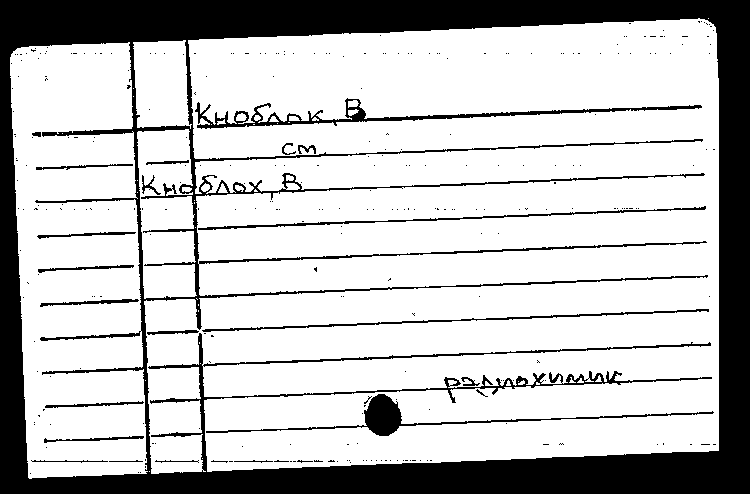 Кноблок, В
см
Кноблох, В
радиохимик